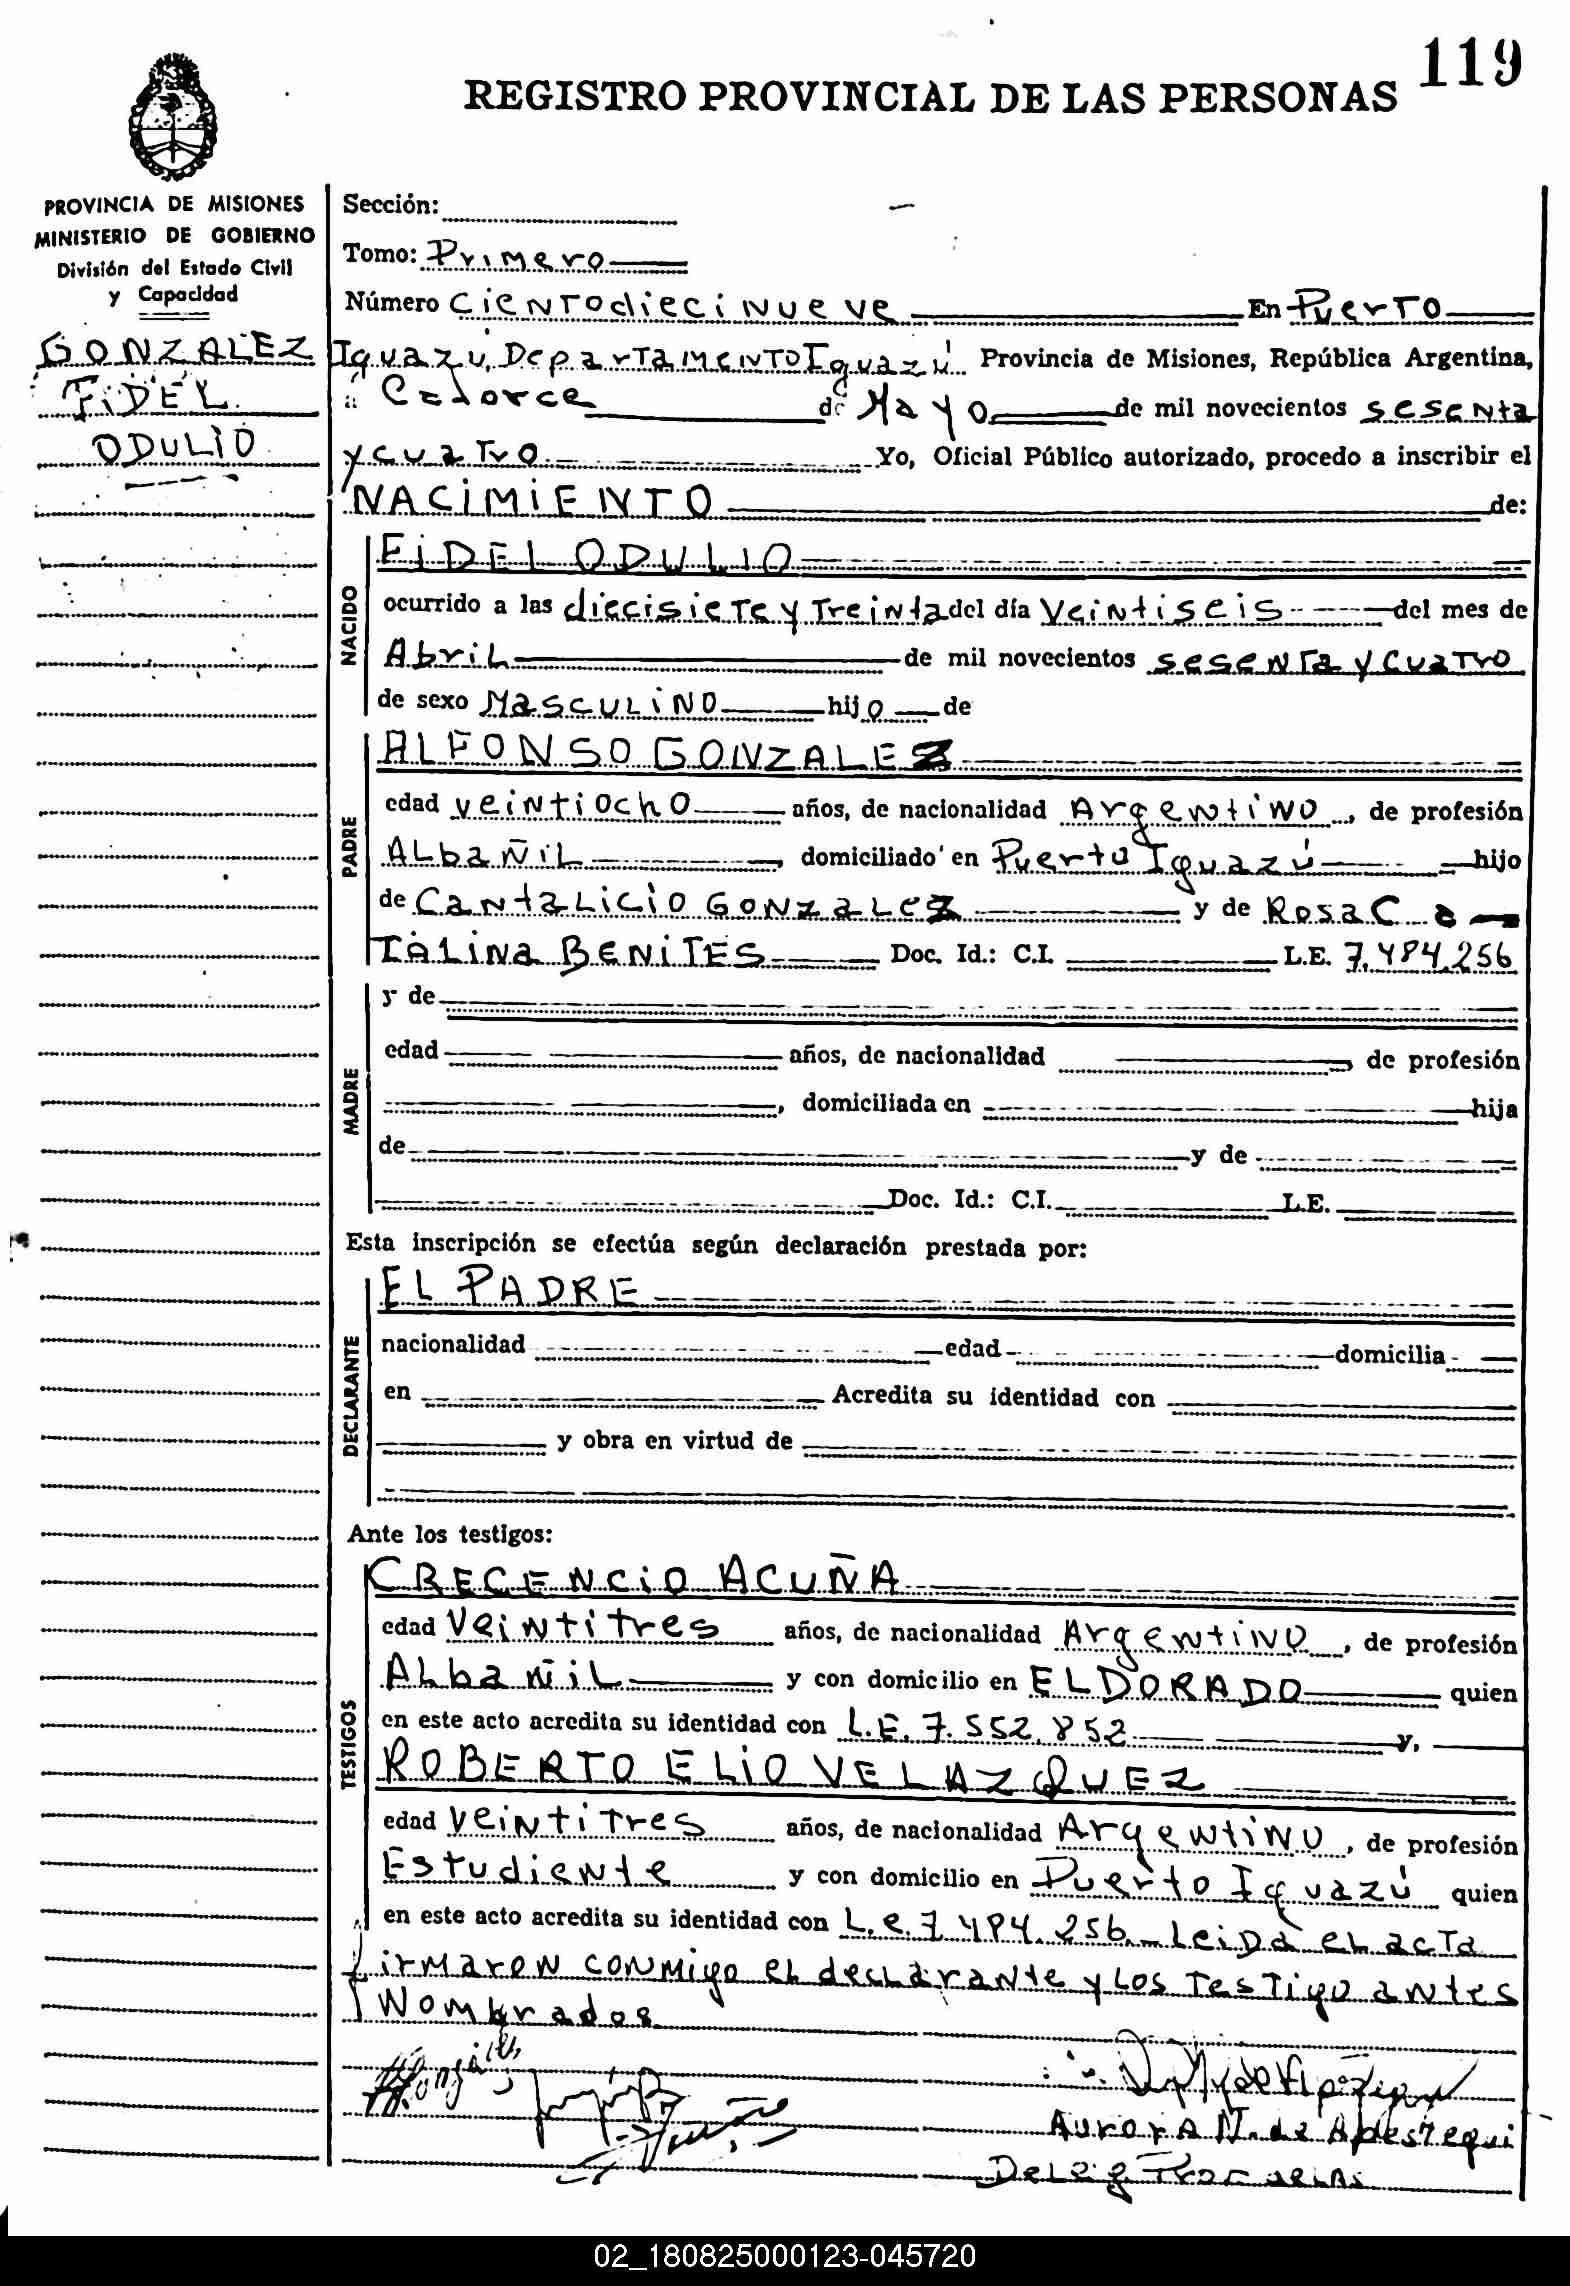 119
REGISTRO PROVINCIAL DE LAS PERSONAS
PROVINCIA DE MISIONES
MINISTERIO DE GOBIERNO
División del Estado Civil
y Capacidad
GONZALEZ
FIDEL
ODULIO
Sección:
Tomo: Primero
Número Cientodiecinueve En Puerto
Iguazú, Departamento Iguazú Provincia de Misiones, República Argentina,
a Catorce de Mayo de mil novecientos sesenta
y cuatro Yo, Oficial Público autorizado, procedo a inscribir el
NACIMIENTO de:
NACIDO
FIDEL ODULIO
ocurrido a las diecisiete y treinta del día Veintiseis del mes de
Abril de mil novecientos sesenta y cuatro
de sexo Masculino hijo de
PADRE
ALFONSO GONZALEZ
edad veintiocho años, de nacionalidad Argentino, de profesión
Albañil, domiciliado en Puerto Iguazú hijo
de Cantalicio Gonzalez y de Rosa Ca
TALINA BENITES Doc. Id.: C.I. L.E. 7.484.256
MADRE
y de
edad años, de nacionalidad, de profesión
, domiciliada en hija
de y de
Doc. Id.: C.I. L.E.
Esta inscripción se efectúa según declaración prestada por:
DECLARANTE
EL PADRE
nacionalidad edad domicilia
en Acredita su identidad con
y obra en virtud de
Ante los testigos:
TESTIGOS
CRECENCIO ACUÑA
edad Veintitres años, de nacionalidad Argentino, de profesión
Albañil y con domicilio en ELDORADO quien
en este acto acredita su identidad con L.E. 7.552.852 y,
ROBERTO ELIO VELAZQUEZ
edad Veintitres años, de nacionalidad Argentino, de profesión
Estudiente y con domicilio en Puerto Iguazú quien
en este acto acredita su identidad con L.e. 7.484.256. Leida el acta
firmaron conmigo el declarante y los Testigo antes
Nombrados
Aurora N. de Apestequi
Deleg
02_180825000123-045720